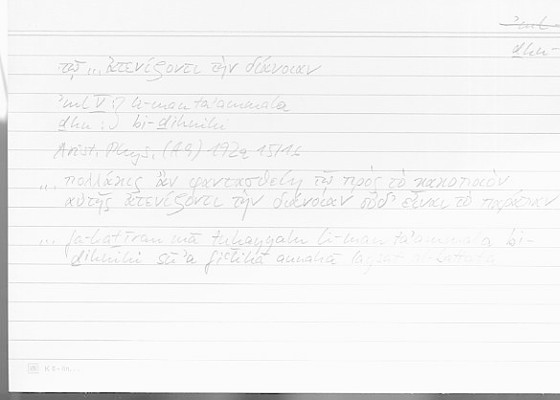 ʾml
ḏhn
τῷ ... ἀτενίζοντι τὴν διάνοιαν
ʾml V :) li-man taʾammala
ḏhn :) bi-ḏihnihī
Arist. Phys. (A9) 192a 15/16
... πολλάκις ἂν φαντασθείη τῷ πρὸς τὸ κακοποιὸν
αὐτῆς ἀτενίζοντι τὴν διάνοιαν οὐδ' εἶναι τὸ παράπαν
... fa-kaṯīran mā tuḫayyalu li-man taʾammala bi-
ḏihnihī sūʾa fiʿlihā annahā laysat